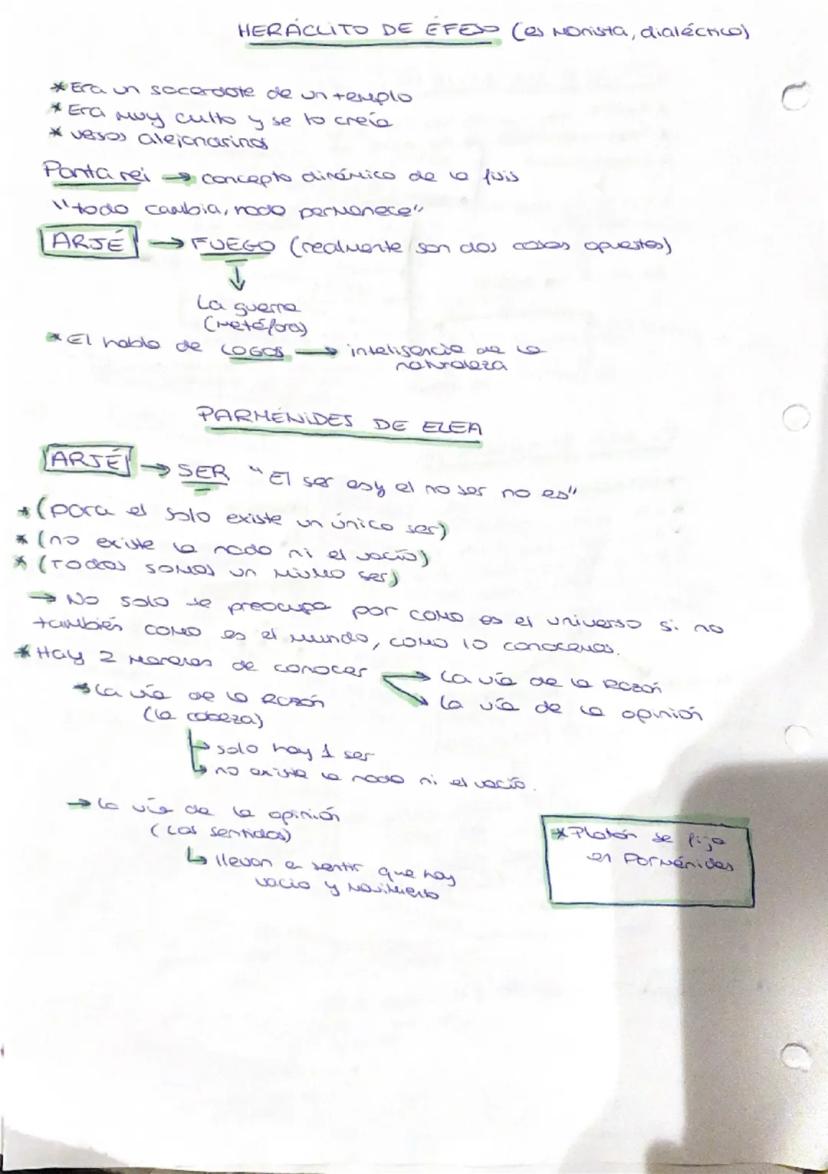 HERÁCLITO DE ÉFESO (es monista, dialéctico)
* Era un sacerdote de un templo
* Era muy culto y se lo creía
* versos alejandrinos
Panta rei → concepto dinámico de la fisis
"todo cambia, nada permanece"
ARJÉ → FUEGO (realmente son dos cosas opuestas)
↓
La guerra
(metáfora)
* El habla de LOGOS → inteligencia de la
naturaleza
PARMÉNIDES DE ELEA
ARJÉ → SER "El ser es y el no ser no es"
* (para el solo existe un único ser)
* (no existe la nada ni el vacío)
* (Todos somos un mismo ser)
→ No solo se preocupa por como es el universo si no
también como es el mundo, como lo conocemos.
* Hay 2 maneras de conocer → La vía de la Razón
→ La vía de la opinión
→ La vía de la Razón
(la cabeza)
↳ solo hay 1 ser
↳ no existe la nada ni el vacío.
→ La vía de la opinión
(Los sentidos)
↳ llevan a sentir que hay
vacio y movimiento
* Platón se fija
en Parménides